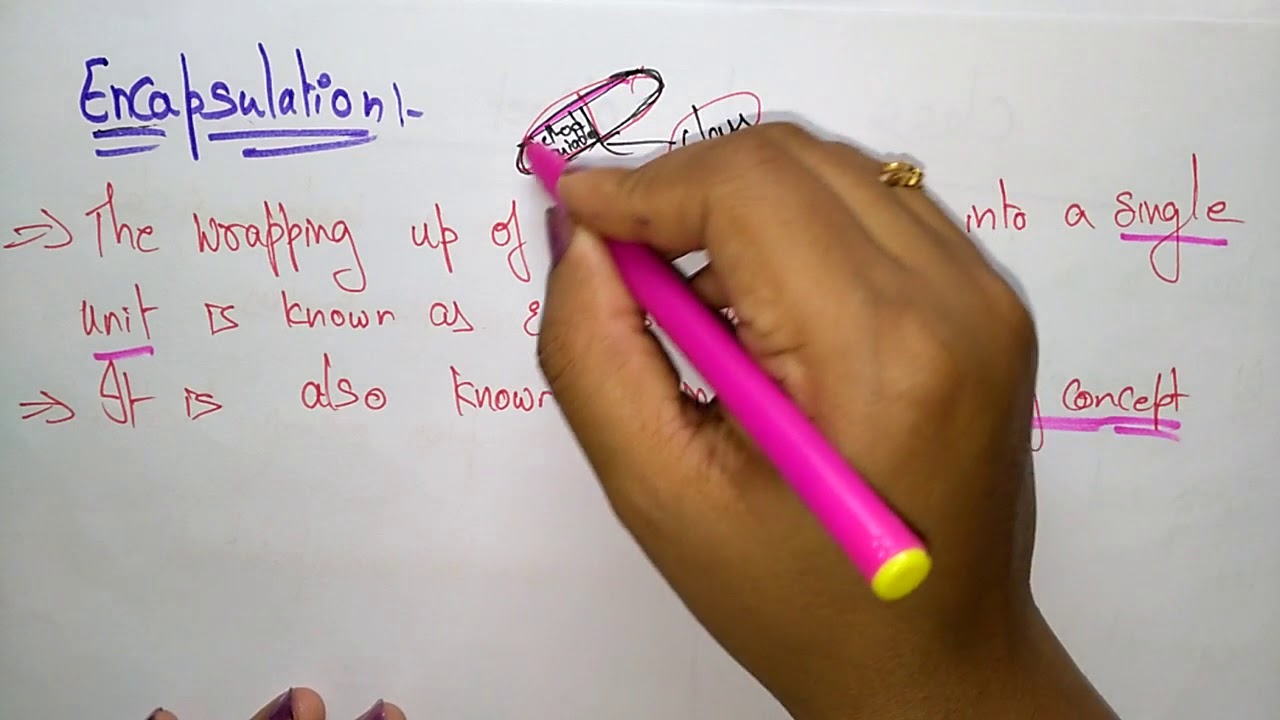 Encapsulation :-
class
The wrapping up of into a single
unit is known as
It is also known concept